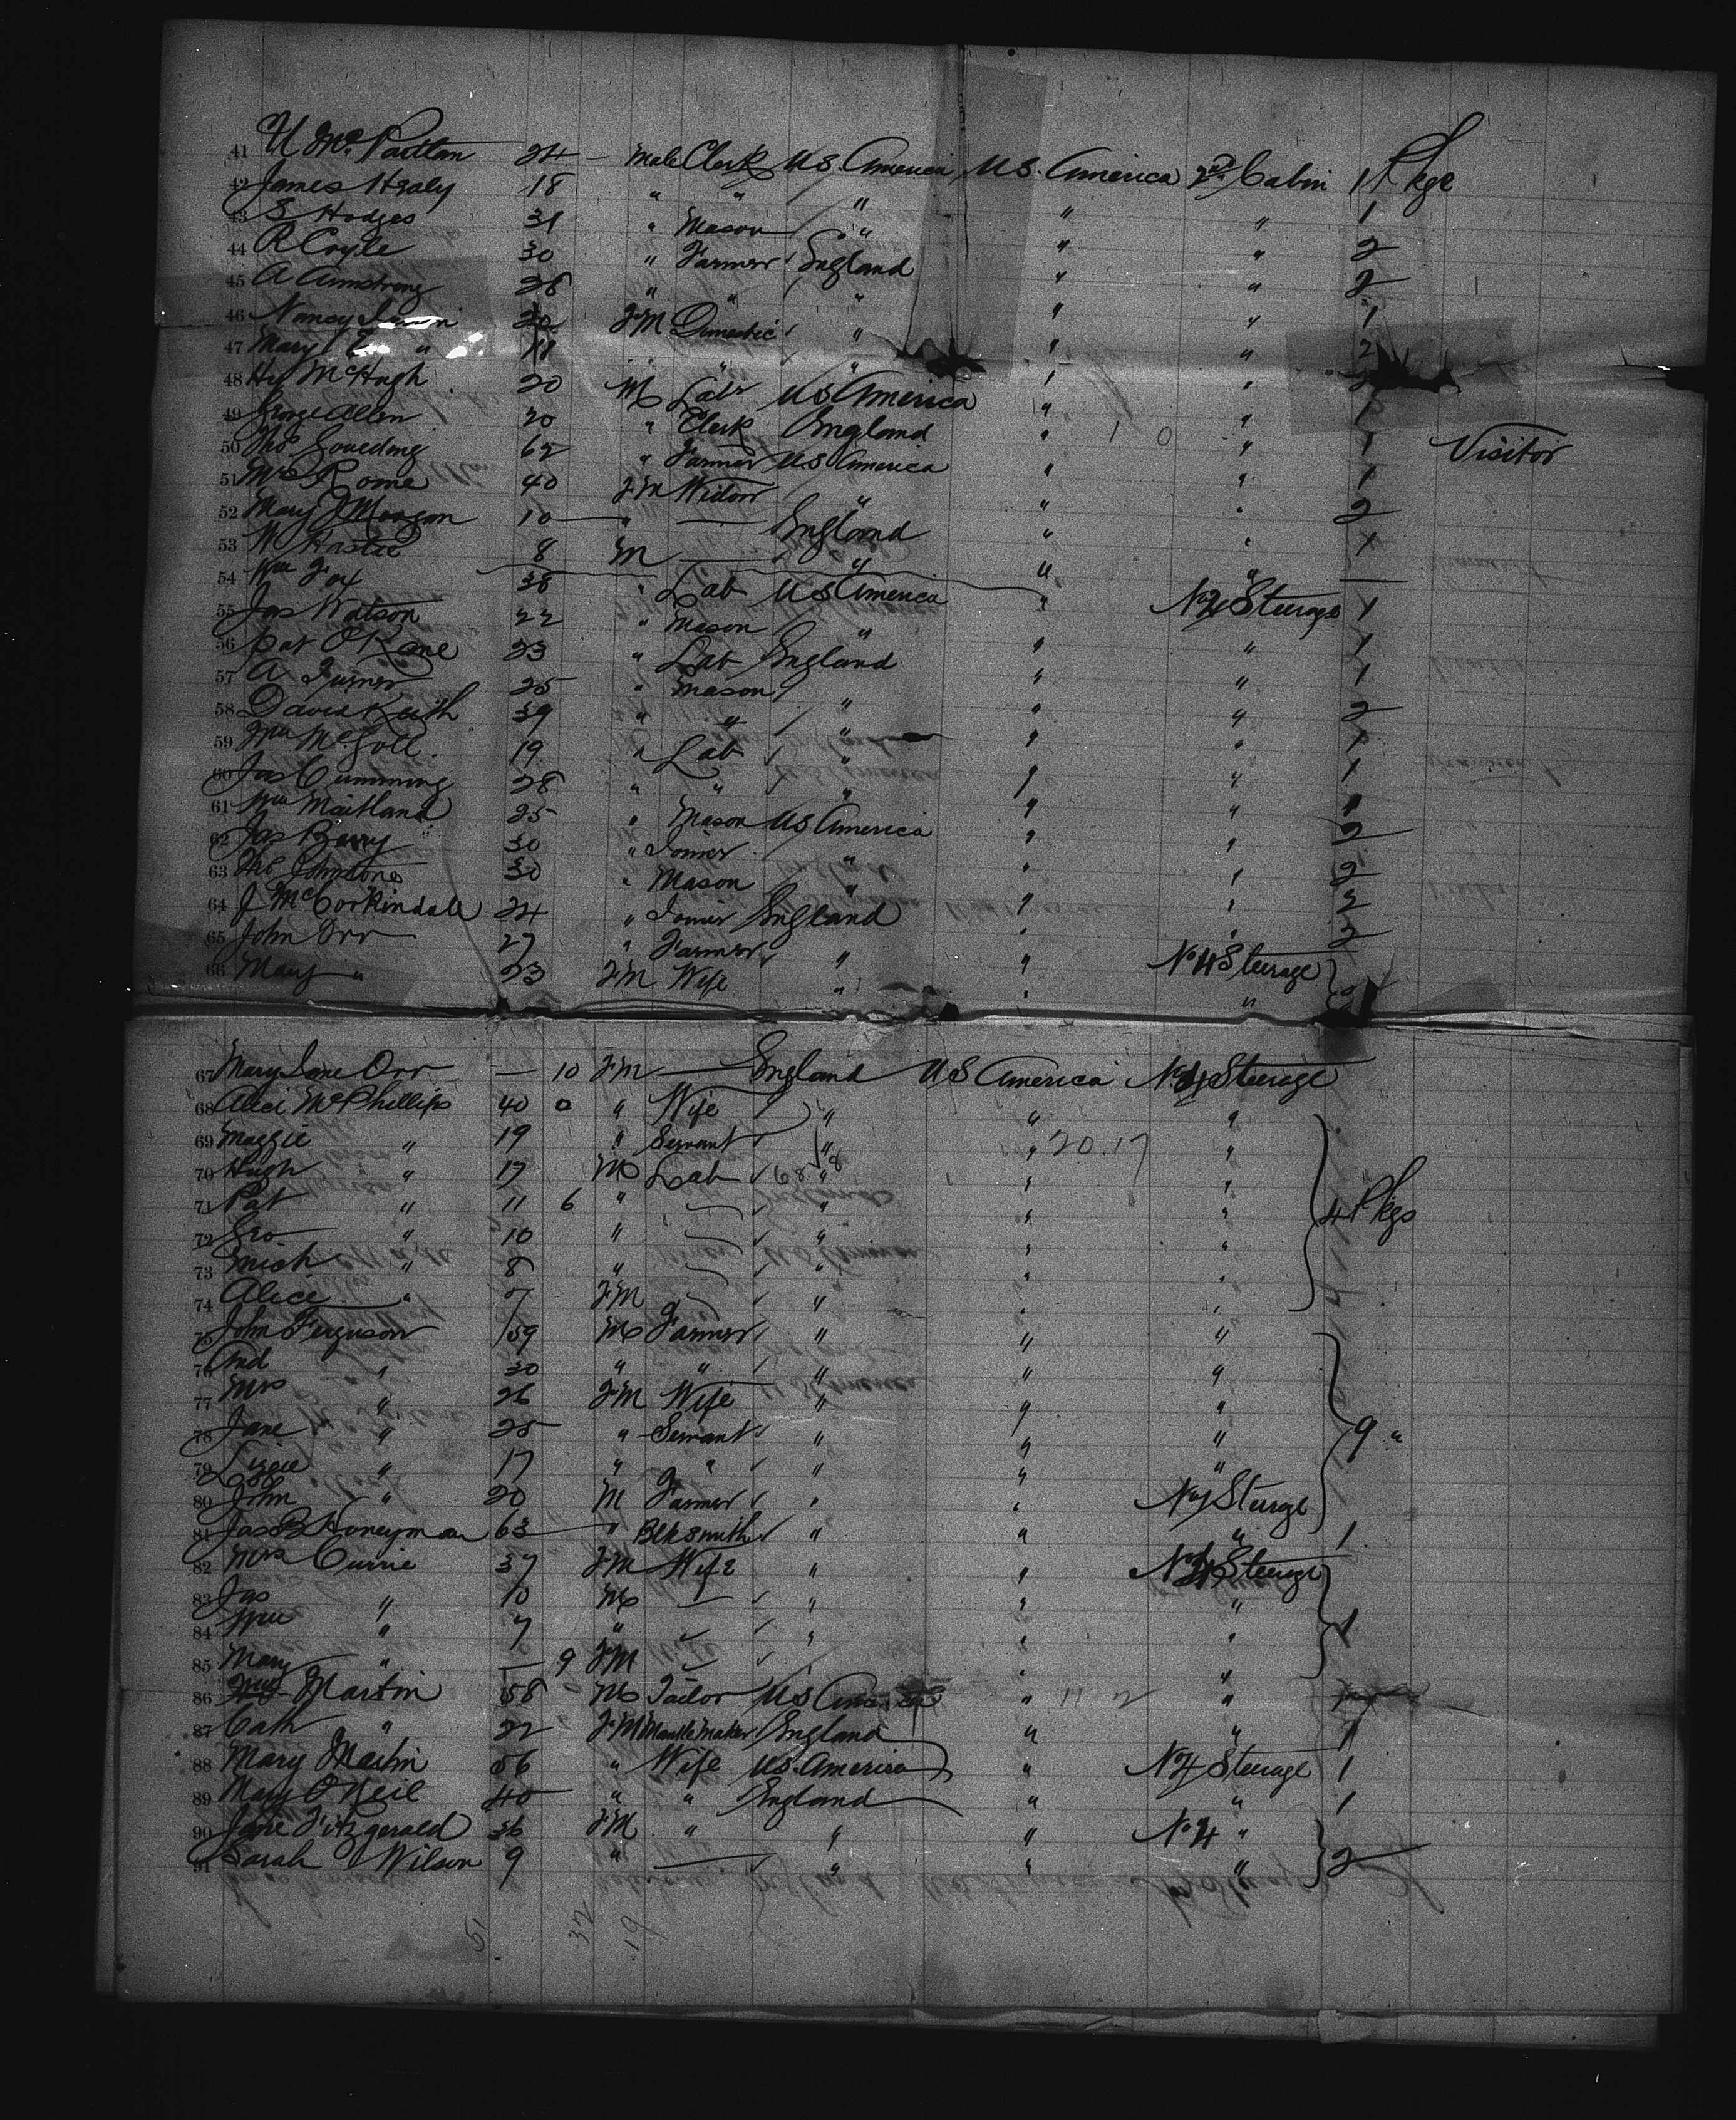 41 McPartlan 24 — Male Clerk U.S. America U.S. America 2nd Cabin 1 Pkge
42 James Healy 18 " " " " " 1
43 S Hodges 31 " Mason " " " 2
44 R Coyle 30 " Farmer England " " 2
45 A Armstrong 26 " " " " " 1
46 Nancy 20 FM Domestic " " " 2
47 Mary " " " " "
48 Hy McHugh 20 M Labr US America " " 1
49 George Allen 20 " Clerk England " 1 0 " 1 Visitor
50 Thos Goulding 62 " Farmer US America " " 1
51 Mrs Rome 40 FM Widow " " " 2
52 Mary J Morgan 10 " — England " " 1
53 W Hastie 8 M — " " "
54 Wm Fox 38 " Lab US America " No 2 Steerage 1
55 Jas Watson 22 " Mason " " " 1
56 Pat O'Kane 23 " Lab England " " 1
57 A Turner 25 " Mason " " " 2
58 David Keith 39 " " " " " 1
59 Wm McColl 19 " Lab " " " 1
60 Jas Cumming 28 " " " " " 1
61 Wm Maitland 25 " Mason US America " " 2
62 Jas Barry 30 " Joiner " " " 2
63 Thos Johnstone 30 " Mason " " " 2
64 J McCorkindale 24 " Joiner England " " 2
65 John Orr 27 " Farmer " " No 4 Steerage
66 Mary " 23 FM Wife " " " 2
67 Mary Jane Orr — 10 FM — England US America No 4 Steerage
68 Alice McPhillips 40 0 " Wife " " "
69 Maggie " 19 " Servant " " 20.17 "
70 Hugh " 17 M Lab " " "
71 Pat " 11 6 " — " " " 4 Pkgs
72 Geo " 10 " — " " "
73 Mich " 8 " — " " "
74 Alice " 7 FM — " " "
75 John Ferguson 59 M Farmer " " "
76 And " 30 " " " " "
77 Mrs " 26 FM Wife " " "
78 Jane " 25 " Servant " " " 9 "
79 Lizzie " 17 " " " " "
80 John " 20 M Farmer " " No 1 Steerge
81 Jas B Honeyman 63 " Blksmith " " " 1
82 Mrs Currie 37 FM Wife " " No 4 Steerage
83 Jas " 10 M — " " "
84 Wm " 7 " — " " " 1
85 Mary " — 9 FM — " "
86 Martin 58 M Tailor US America " 11 2 "
87 Cath " 22 FM Mantle Maker England " " 1
88 Mary Martin 56 " Wife US America " No 4 Steerage 1
89 Mary O'Neil 40 " " England " " 1
90 Jane Fitzgerald 36 FM " " " No 4 "
91 Sarah Wilson 9 " — " " " 2
51 32 19